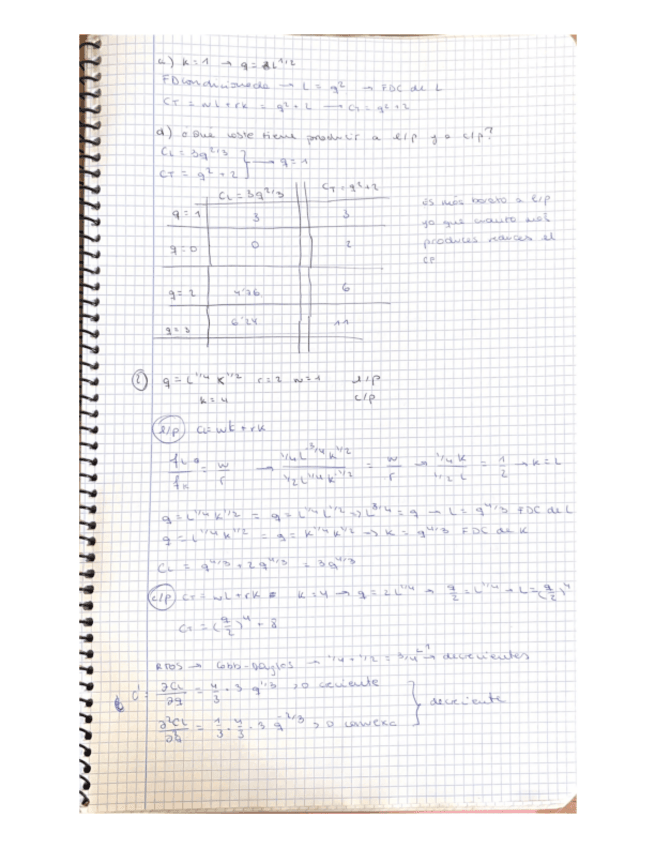 c) k=1 → q = L^1/2
FD condicionada → L = q² → FDC de L
CT = wL + rK = q² + 2 → CT = q² + 2
d) ¿Que coste tiene producir a l/p y a c/p?
CL = 3q^2/3
CT = q² + 2 } → q = 1
CL = 3q^2/3 CT = q² + 2
q = 1 3 3
q = 0 0 2
q = 2 4'76 6
q = 3 6'24 11
es más barato a l/p
ya que cuanto más
produces reduces el
② q = L^1/4 K^1/2 r = 2 w = 1 l/p
k = 4 c/p
l/p CL = wL + rK
fL/fK = w/r → (1/4 L^-3/4 K^1/2)/(1/2 L^1/4 K^-1/2) = w/r → (1/4 K)/(1/2 L) = 1/2 → K = L
q = L^1/4 K^1/2 = q = L^1/4 L^1/2 → L^3/4 = q → L = q^4/3 FDC de L
q = L^1/4 K^1/2 = q = K^1/4 K^1/2 → K = q^4/3 FDC de K
CL = q^4/3 + 2q^4/3 = 3q^4/3
c/p CT = wL + rK K = 4 → q = 2L^1/4 → q/2 = L^1/4 → L = (q/2)^4
CT = (q/2)^4 + 8
RTOS → Cobb-Douglas → 1/4 + 1/2 = 3/4 < 1 → decrecientes
C' = ∂CL/∂q = 4/3 · 3 q^1/3 > 0 creciente
∂²CL/∂q = 1/3 · 4/3 · 3 q^-2/3 > 0 convexa } decreciente